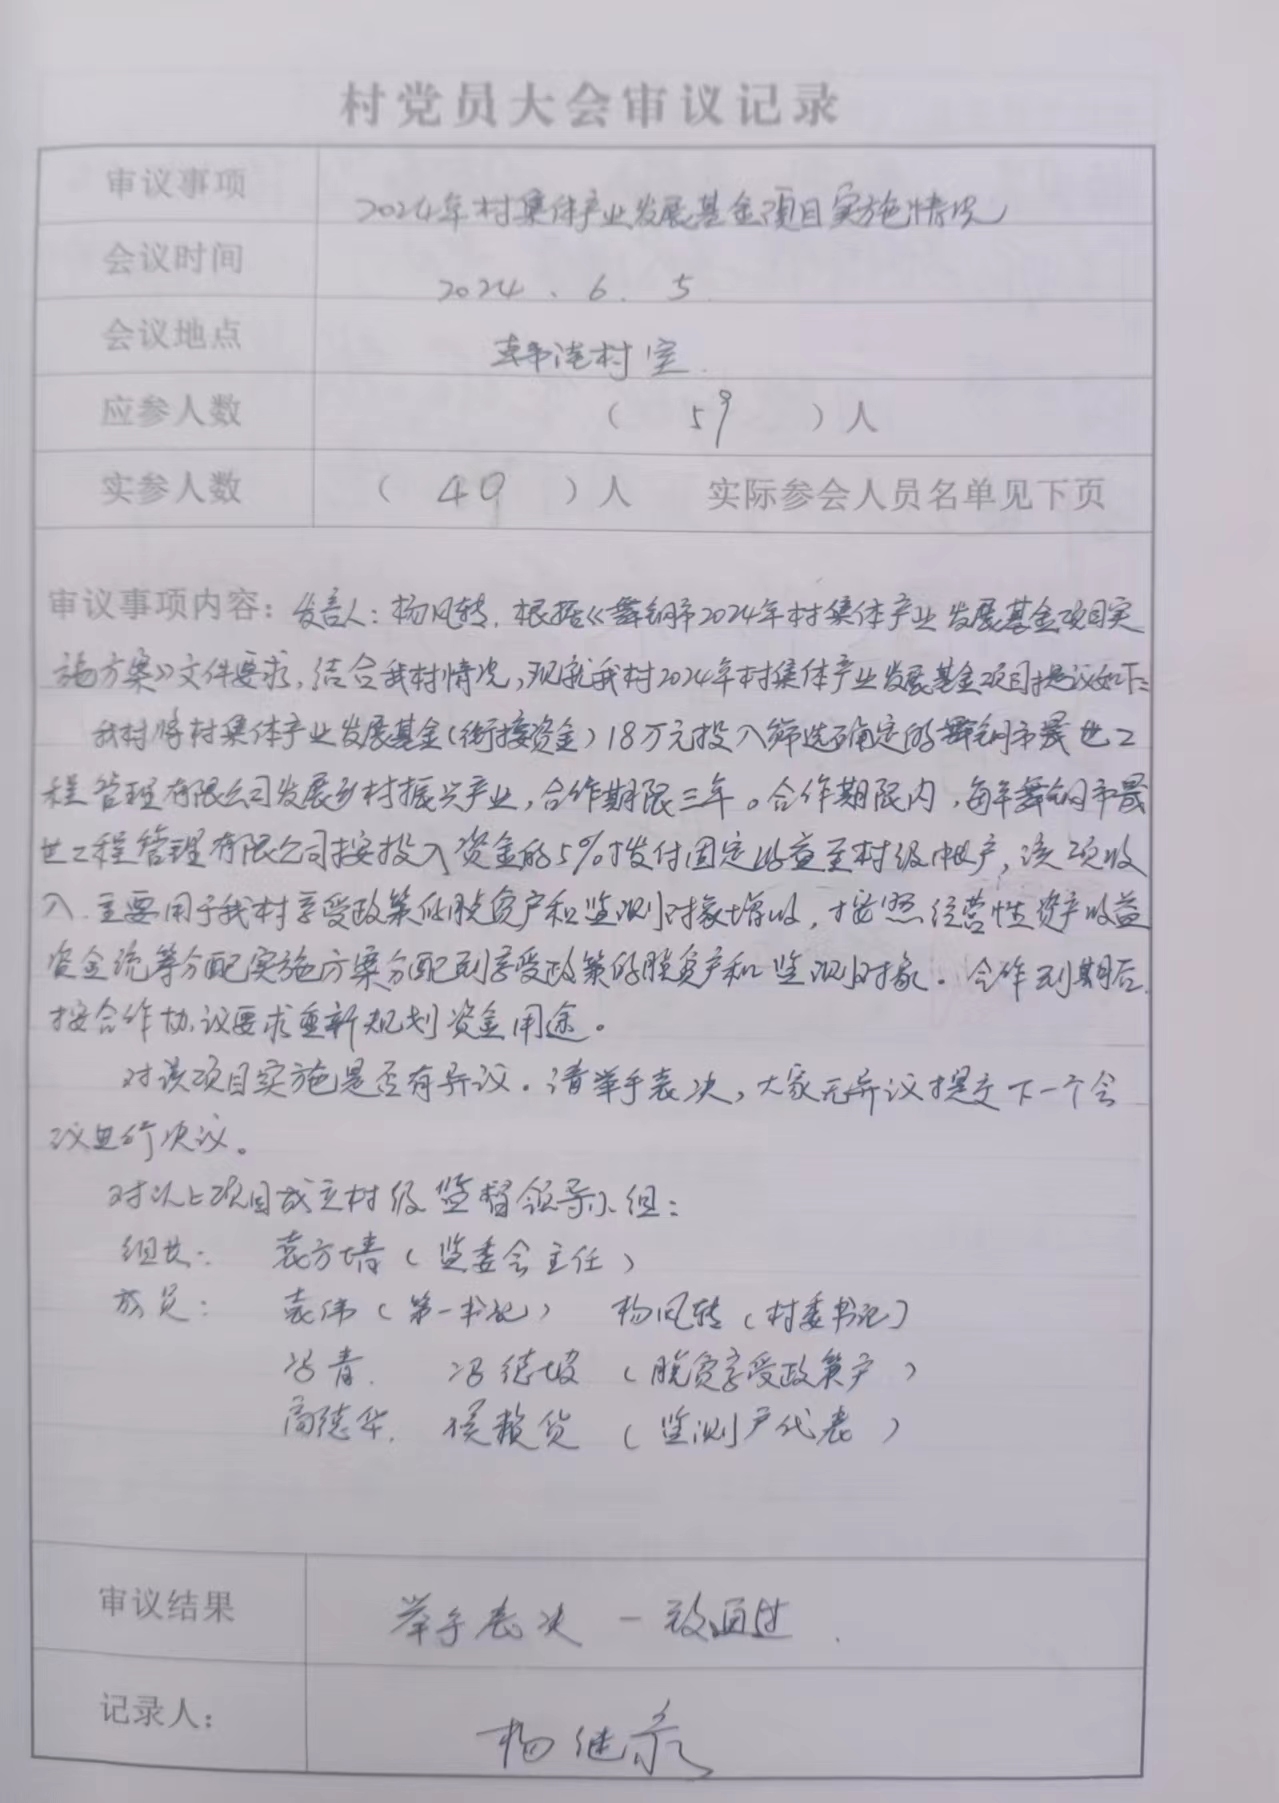 村党员大会审议记录
审议事项 2024年村集体产业发展基金项目实施情况
会议时间 2024.6.5
会议地点 韩庄村室.
应参人数 （59）人
实参人数 （49）人 实际参会人员名单见下页
审议事项内容：发言人：杨凤转.根据《舞钢市2024年村集体产业发展基金项目实
施方案》文件要求,结合我村情况,现就我村2024年村集体产业发展基金项目提议如下:
我村将村集体产业发展基金(衔接资金)18万元投入筛选确定的舞钢市晟世工
程管理有限公司发展乡村振兴产业,合作期限三年。合作期限内,每年舞钢市晟
世工程管理有限公司按投入资金的5%拨付固定收益至村级账户,该项收
入.主要用于我村享受政策的脱贫户和监测对象增收,按照经营性资产收益
资金统筹分配实施方案分配到享受政策的脱贫户和监测对象.合作到期后,
按合作协议要求重新规划资金用途。
对该项目实施是否有异议.请举手表决,大家无异议提交下一个会
议进行决议。
对以上项目成立村级监督领导小组:
组长: 袁方(监委会主任)
成员: 袁伟(第一书记) 杨凤转(村委书记)
冯青. 冯德坡(脱贫享受政策户)
高德华. 侯赖货(监测户代表)
审议结果 举手表决 一致通过.
记录人： 杨继录